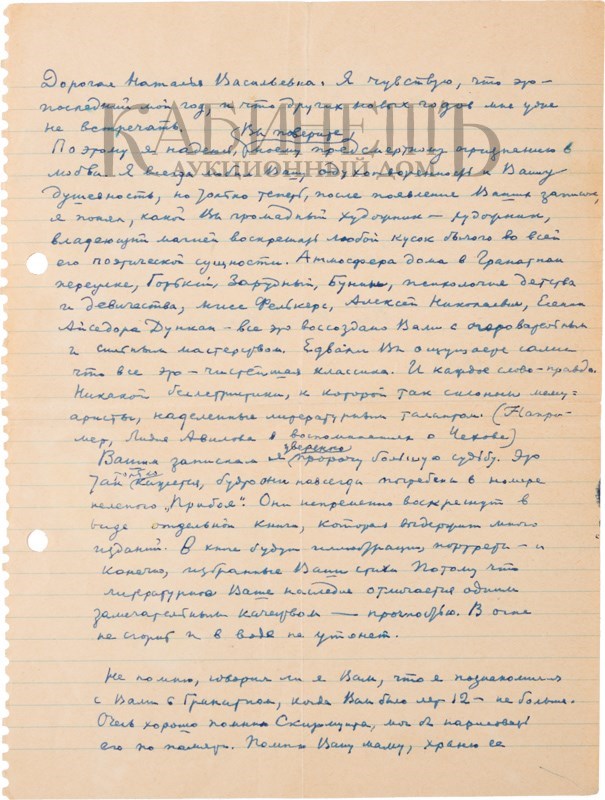 Дорогая Наталья Васильевна. Я чувствую, что это –
последний мой год, и что других новых годов мне уже
не встречать.
КАБИНЕТЪ
АУКЦИОННЫЙ ДОМ
Вы поверите
Поэтому я надеюсь, моему предсмертному признанию в
любви. Я всегда Вашу одухотворенность и Вашу
душевность, но только теперь, после появления Ваших записок,
я понял, какой Вы громадный художник – художник,
владеющий магией воскрешать любой кусок былого во всей
его поэтической сущности. Атмосфера дома в Гранатном
переулке, Горький, Зарудный, Бунин, психология детства
и девичества, мисс Алексей Николаевич, Есенин
Айседора Дункан – все это воссоздано Вами с очаровательным
и сильным мастерством. Едва ли Вы ощущаете сами
что все это – чистейшая классика. И каждое слово – правда.
Никакой беллетристики, к которой так склонны мему-
аристы, наделенные литературным талантом. (Напри-
мер, Лидия Авилова в воспоминаниях о Чехове)
уверенно
Вашим запискам я пророчу большую судьбу. Это
только
так кажется, будто они навсегда погребены в номере
нелепого „Прибоя“. Они непременно воскреснут в
виде отдельной книги, которая выдержит много
изданий. В книге будут иллюстрации, портреты – и
конечно, избранные Ваши стихи. Потому что
литературное Ваше наследие отличается одним
замечательным качеством — прочностью. В огне
не сгорит и в воде не утонет.
Не помню, говорил ли я Вам, что я познакомился
с Вами в Гранатном, когда Вам было лет 12 – не больше.
Очень хорошо помню Скирмунта, мог бы нарисовать
его по памяти. Помню Вашу маму, храню ее